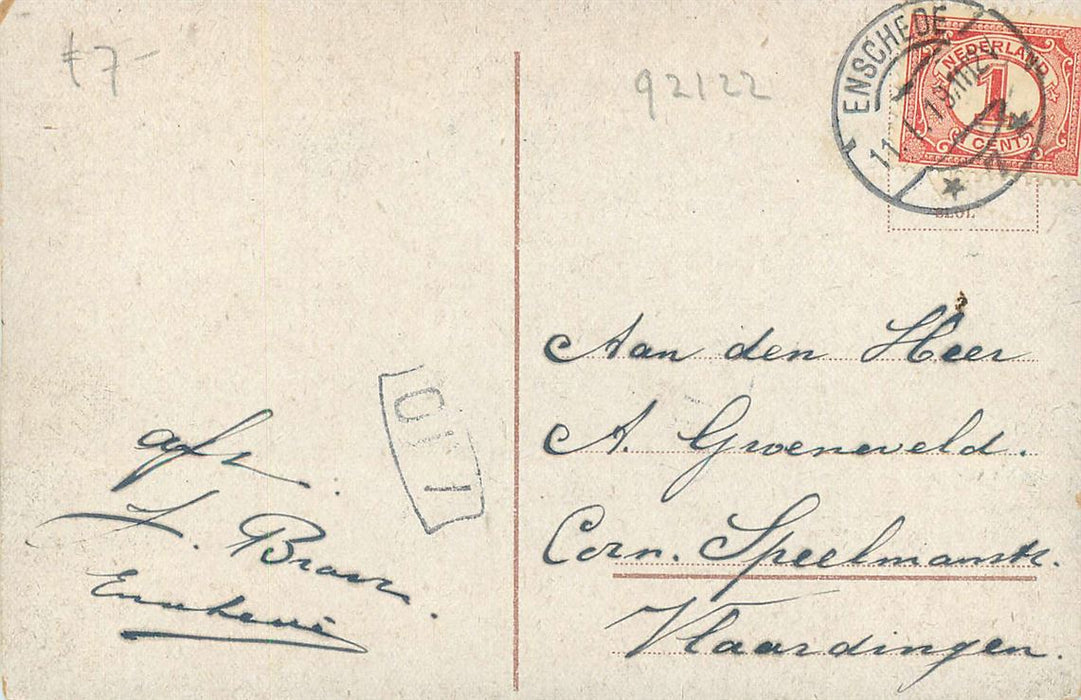 £7-
92122
ENSCHEDE
NEDERLAND
1
CENT
Aan den Heer
A. Groeneveld.
Corn. Speelmanstr.
Vlaardingen.
afz.
Enschede